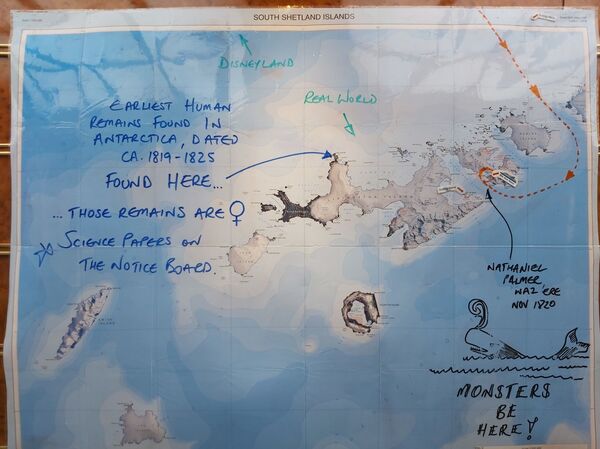 SOUTH SHETLAND ISLANDS
DISNEYLAND
REAL WORLD
EARLIEST HUMAN
REMAINS FOUND IN
ANTARCTICA, DATED
CA. 1819-1825
FOUND HERE...
... THOSE REMAINS ARE ♀
SCIENCE PAPERS ON
THE NOTICE BOARD.
NATHANIEL
PALMER
WAZ 'ERE
NOV 1820
MONSTERS
BE
HERE!